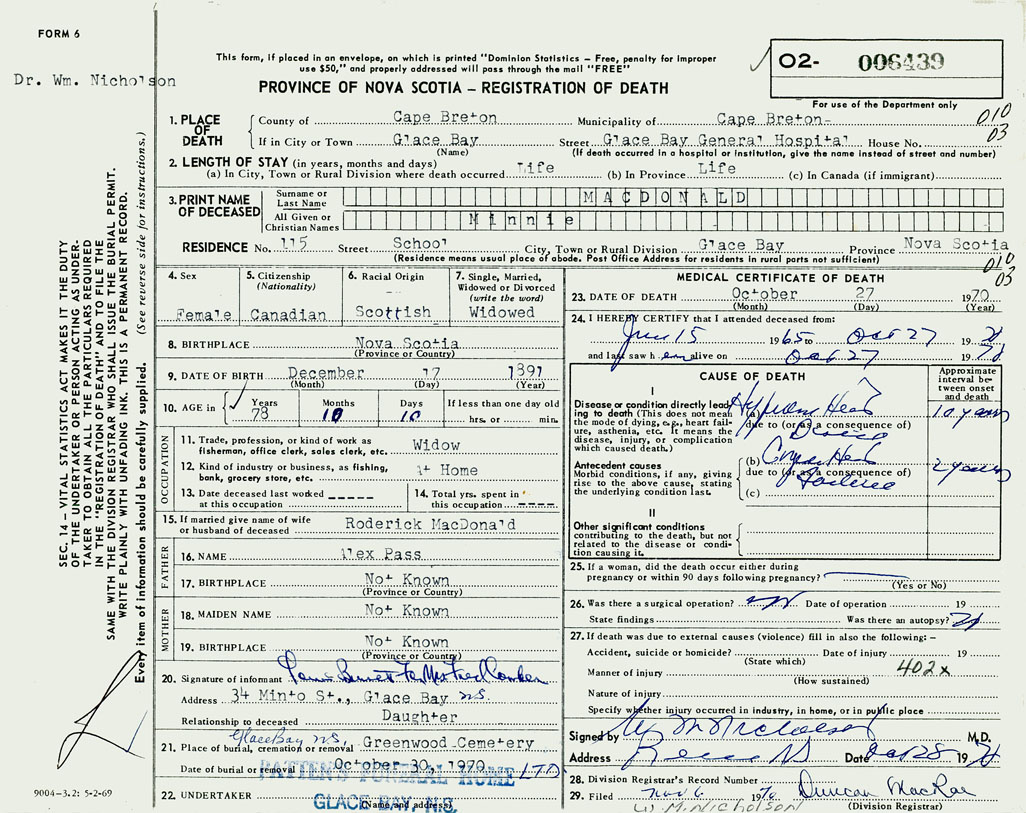 FORM 6
Dr. Wm. Nicholson
This form, if placed in an envelope, on which is printed "Dominion Statistics - Free, penalty for improper
use $50," and properly addressed will pass through the mail "FREE"
PROVINCE OF NOVA SCOTIA – REGISTRATION OF DEATH
O2- 006439
For use of the Department only
010
03
1. PLACE OF DEATH
County of Cape Breton Municipality of Cape Breton
If in City or Town Glace Bay Street Glace Bay General Hospital House No.
(Name) (If death occurred in a hospital or institution, give the name instead of street and number)
2. LENGTH OF STAY (in years, months and days)
(a) In City, Town or Rural Division where death occurred Life (b) In Province Life (c) In Canada (if immigrant)
3. PRINT NAME OF DECEASED
Surname or Last Name MACDONALD
All Given or Christian Names Minnie
RESIDENCE No. 115 Street School City, Town or Rural Division Glace Bay Province Nova Scotia
(Residence means usual place of abode. Post Office Address for residents in rural parts not sufficient)
010
03
4. Sex Female
5. Citizenship (Nationality) Canadian
6. Racial Origin Scottish
7. Single, Married, Widowed or Divorced (write the word) Widowed
8. BIRTHPLACE Nova Scotia
(Province or Country)
9. DATE OF BIRTH December 17 1891
(Month) (Day) (Year)
10. AGE in Years 78 Months 10 Days 10 If less than one day old hrs. or min.
OCCUPATION
11. Trade, profession, or kind of work as
fisherman, office clerk, sales clerk, etc. Widow
12. Kind of industry or business, as fishing,
bank, grocery store, etc. At Home
13. Date deceased last worked
at this occupation
14. Total yrs. spent in
this occupation
15. If married give name of wife
or husband of deceased Roderick MacDonald
FATHER
16. NAME Alex Pass
17. BIRTHPLACE Not Known
(Province or Country)
MOTHER
18. MAIDEN NAME Not Known
19. BIRTHPLACE Not Known
(Province or Country)
20. Signature of informant
Address 34 Minto St., Glace Bay N.S.
Relationship to deceased Daughter
Glace Bay NS,
21. Place of burial, cremation or removal Greenwood Cemetery
Date of burial or removal October 30, 1970
PATTEN'S FUNERAL HOME LTD
22. UNDERTAKER GLACE BAY, N.S.
(Name and address)
MEDICAL CERTIFICATE OF DEATH
23. DATE OF DEATH October 27 1970
(Month) (Day) (Year)
24. I HEREBY CERTIFY that I attended deceased from:
15 1965 to Oct 27 19 70
and last saw h er alive on Oct 27 19 70
CAUSE OF DEATH
Approximate interval between onset and death
I
Disease or condition directly leading to death (This does not mean the mode of dying, e.g., heart failure, asthenia, etc. It means the disease, injury, or complication which caused death.)
(a) Heart 10 years
due to (or as a consequence of)
Disease
Antecedent causes
Morbid conditions, if any, giving rise to the above cause, stating the underlying condition last.
(b) Heart 2 years
due to (or as a consequence of)
Failure
(c)
II
Other significant conditions
contributing to the death, but not
related to the disease or condition
causing it.
25. If a woman, did the death occur either during
pregnancy or within 90 days following pregnancy?
(Yes or No)
26. Was there a surgical operation? Date of operation 19
State findings Was there an autopsy?
27. If death was due to external causes (violence) fill in also the following: –
Accident, suicide or homicide? Date of injury 19
(State which)
Manner of injury 402x
(How sustained)
Nature of injury
Specify whether injury occurred in industry, in home, or in public place
Signed by Wm Nicholson M.D.
Address Date Oct 28 19 70
28. Division Registrar's Record Number
29. Filed Nov 6 1970 Duncan MacRae
W. M. Nicholson (Division Registrar)
SEC. 14 – VITAL STATISTICS ACT MAKES IT THE DUTY
OF THE UNDERTAKER OR PERSON ACTING AS UNDER-
TAKER TO OBTAIN ALL THE PARTICULARS REQUIRED
IN THE "REGISTRATION OF DEATH" AND TO FILE THE
SAME WITH THE DIVISION REGISTRAR WHO SHALL ISSUE THE BURIAL PERMIT.
WRITE PLAINLY WITH UNFADING INK. THIS IS A PERMANENT RECORD.
Every item of information should be carefully supplied. (See reverse side for instructions.)
9004-3.2: 5-2-69